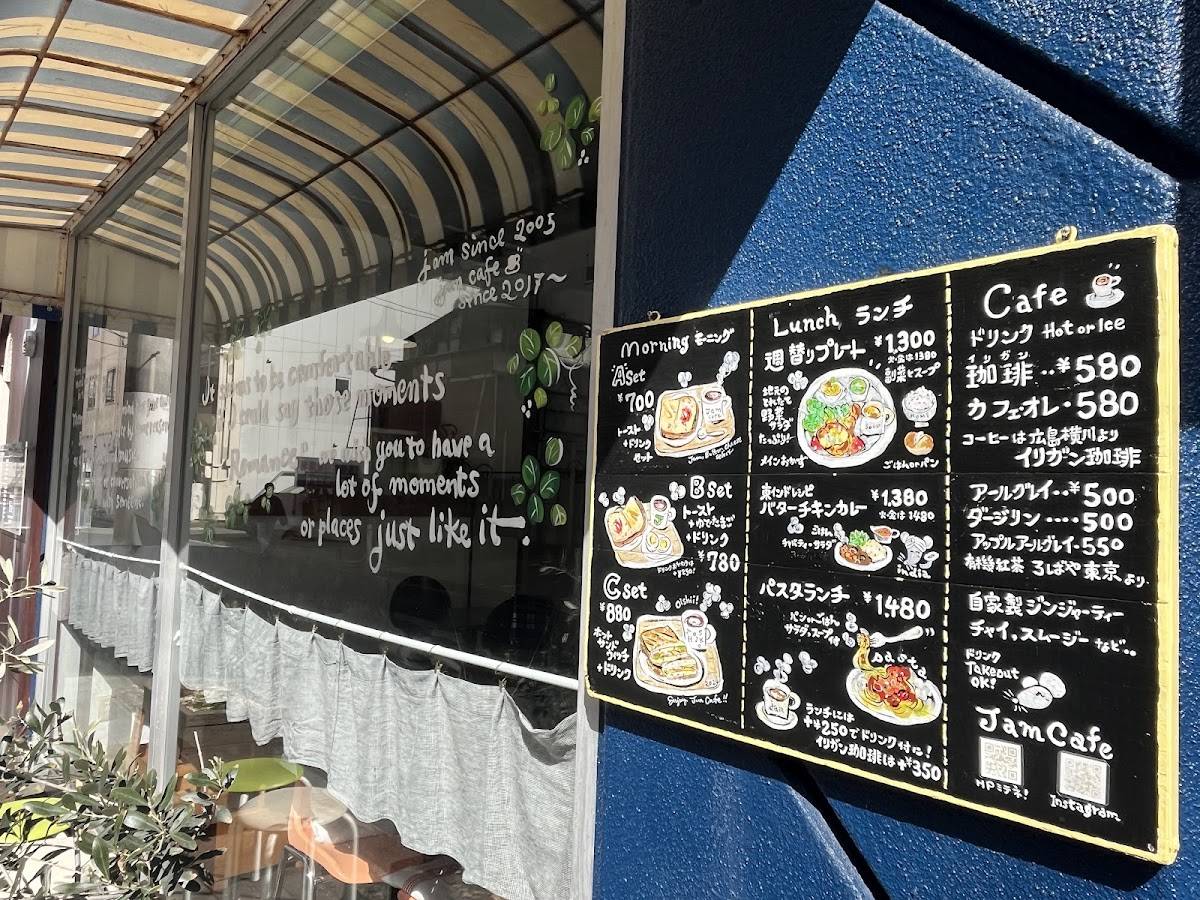 jam since 2005
jam cafe
since 2017~
to be comfortable
could say those moments
wish you to have a
lot of moments
or places just like it.
Morning モーニング
A set
¥700
トースト
+ドリンク
セット
B set
トースト
+ゆでたまご
+ドリンク
¥780
C set
¥880
Oishii!
ホット
サンド
ウィッチ
+ドリンク
Enjoy Jam Cafe!!
Lunch ランチ
週替りプレート
¥1,300
火・金は1380
副菜とスープ
地元の
とれたて
野菜
サラダ
たっぷり!
メインおかず
ごはんorパン
東インドレシピ
バターチキンカレー
¥1,380
火・金は1480
ごはん
チャパティ・サラダ
india
パスタランチ
¥1,480
パンorごはん
サラダ、スープ付
pasta
ランチには
+¥250でドリンク付に!
イリガン珈琲は+¥350
Cafe
ドリンク Hot or Ice
イリガン
珈琲・・¥580
カフェ・オレ・580
コーヒーは広島横川より
イリガン珈琲
アールグレイ・・¥500
ダージリン・・・・・500
アップルアールグレイ・550
有機紅茶 ろばや東京より
自家製ジンジャーティー
チャイ、スムージーなど・・
ドリンク
Takeout
OK!
Jam Cafe
HPミテネ!
Instagram